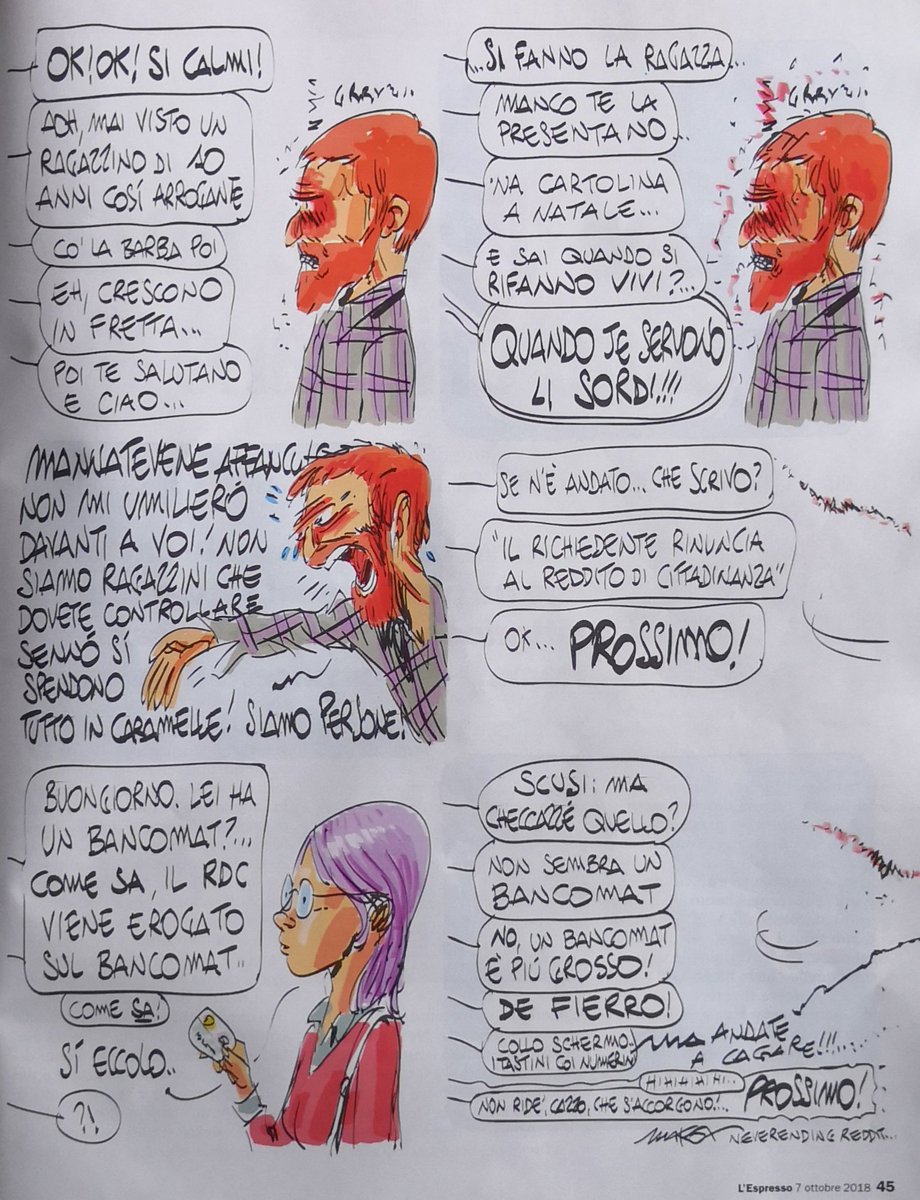 OK! OK! SI CALMI!
AOH, MAI VISTO UN
RAGAZZINO DI 40
ANNI COSÍ ARROGANTE
CO' LA BARBA POI
EH, CRESCONO
IN FRETTA...
POI TE SALUTANO
E CIAO...
GRRY
...SI FANNO LA RAGAZZA...
MANCO TE LA
PRESENTANO...
'NA CARTOLINA
A NATALE...
E SAI QUANDO SI
RIFANNO VIVI?...
QUANDO JE SERVONO
LI SORDI!!!
GRRY
MANNATEVENE
NON MI UMILIERÓ
DAVANTI A VOI! NON
SIAMO RAGAZZINI CHE
DOVETE CONTROLLARE
SENNÓ SI
SPENDONO
TUTTO IN CARAMELLE! SIAMO PERSONE!
SE N'É ANDATO... CHE SCRIVO?
"IL RICHIEDENTE RINUNCIA
AL REDDITO DI CITTADINANZA"
OK... PROSSIMO!
BUONGIORNO. LEI HA
UN BANCOMAT?...
COME SA, IL RDC
VIENE EROGATO
SUL BANCOMAT..
COME SA!
SÍ ECCOLO..
?!
SCUSI: MA
CHECCAZZÉ QUELLO?
NON SEMBRA UN
BANCOMAT
NO, UN BANCOMAT
É PIÚ GROSSO!
DE FIERRO!
COLLO SCHERMO..
I TASTINI COI NUMERINI
MA ANDATE
A CAGARE!!!...
HIHIHIHIHI..
NON RIDE', CAZZO, CHE S'ACCORGONO!.. PROSSIMO!
MAKKOX NEVERENDING REDDIT...
L'Espresso 7 ottobre 2018 45